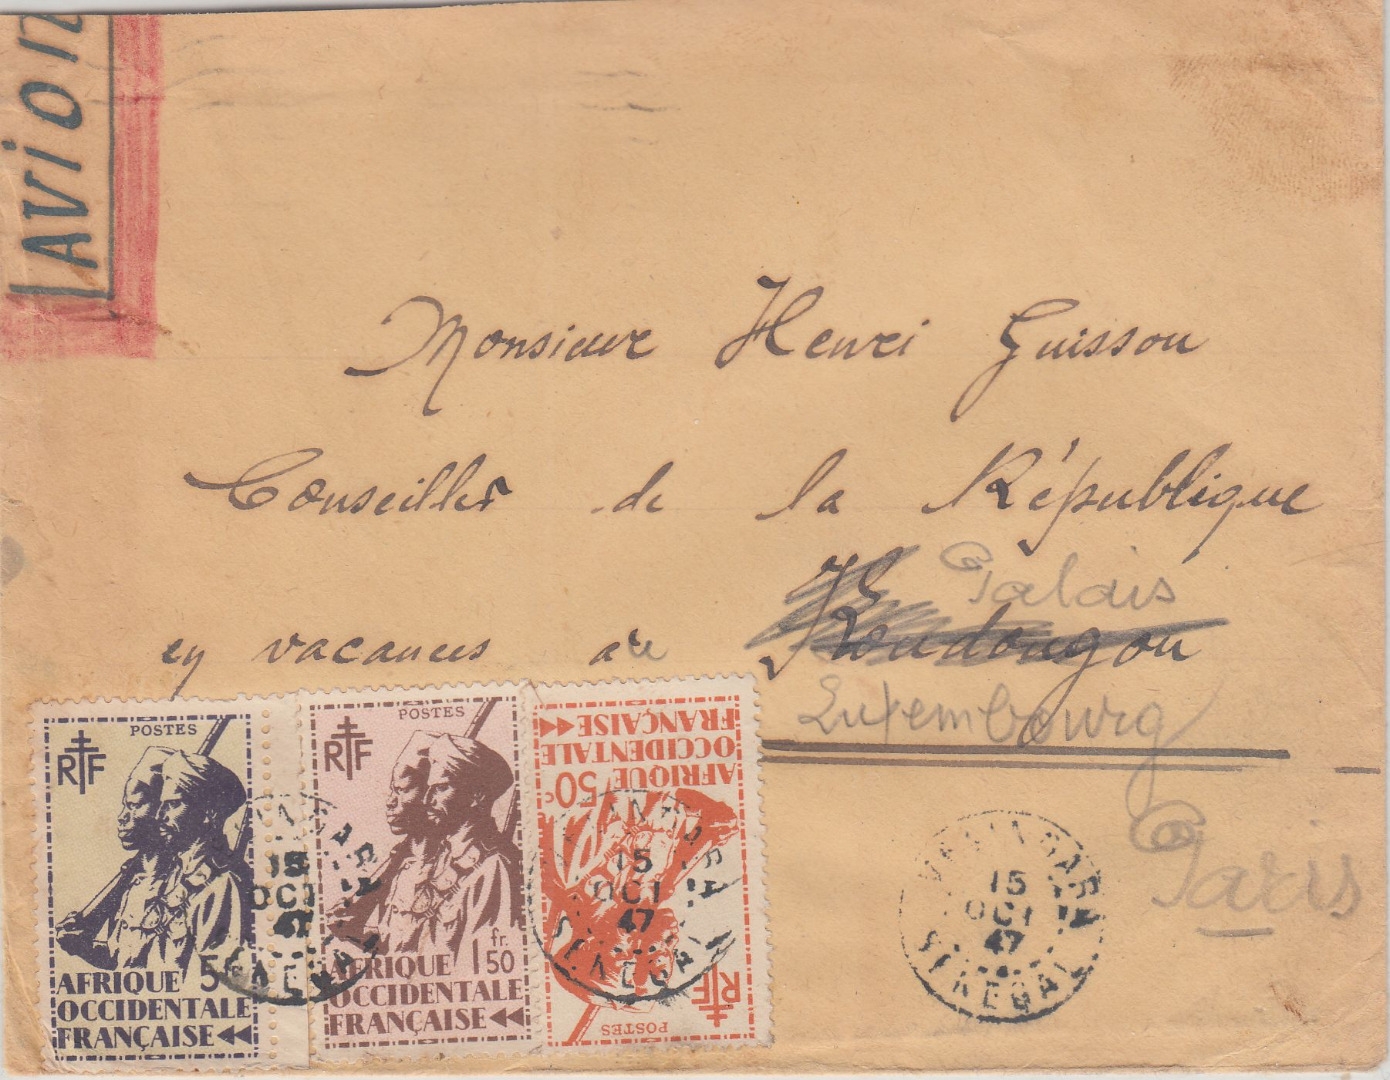 Avion
Monsieur Henri Guissou
Conseiller de la République
Palais
en vacances à
Luxembourg
Paris
POSTES
RF
5
AFRIQUE
OCCIDENTALE
FRANÇAISE
POSTES
RF
fr.
1 50
AFRIQUE
OCCIDENTALE
FRANÇAISE
POSTES
RF
50c
AFRIQUE
OCCIDENTALE
FRANÇAISE
15
OCT
47
SENEGAL
15
OCT
47
SENEGAL
15
OCT
47
SENEGAL